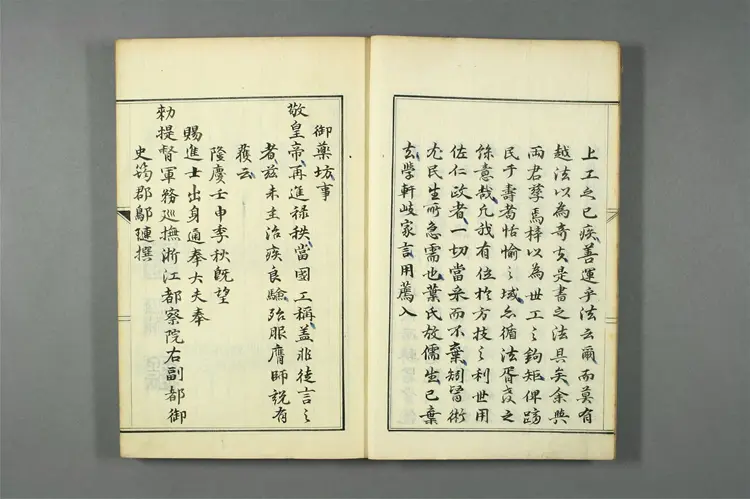 上工之已疾善運乎法云爾而莫有
越法以為奇支是書之法具矣余與
兩君孳焉梓以為世工之鉤矩俾躋
民于壽耇怡愉之域么循法胥度之
餘意哉凢哉有位於方技之利世用
佐仁政者一切當采而不棄矧醫術
尤民生所急需也葉氏故儒生已棄
去學軒岐家言用薦入
御藥坊事
敬皇帝再進禄秩當國工稱蓋非徒言之
者兹未主治疾良驗殆服膺師說有
穫云
隆慶壬申季秋既望
賜進士出身通奉大夫奉
勑提督軍務巡撫浙江都察院右副都御
史筠郡鄔璉撰